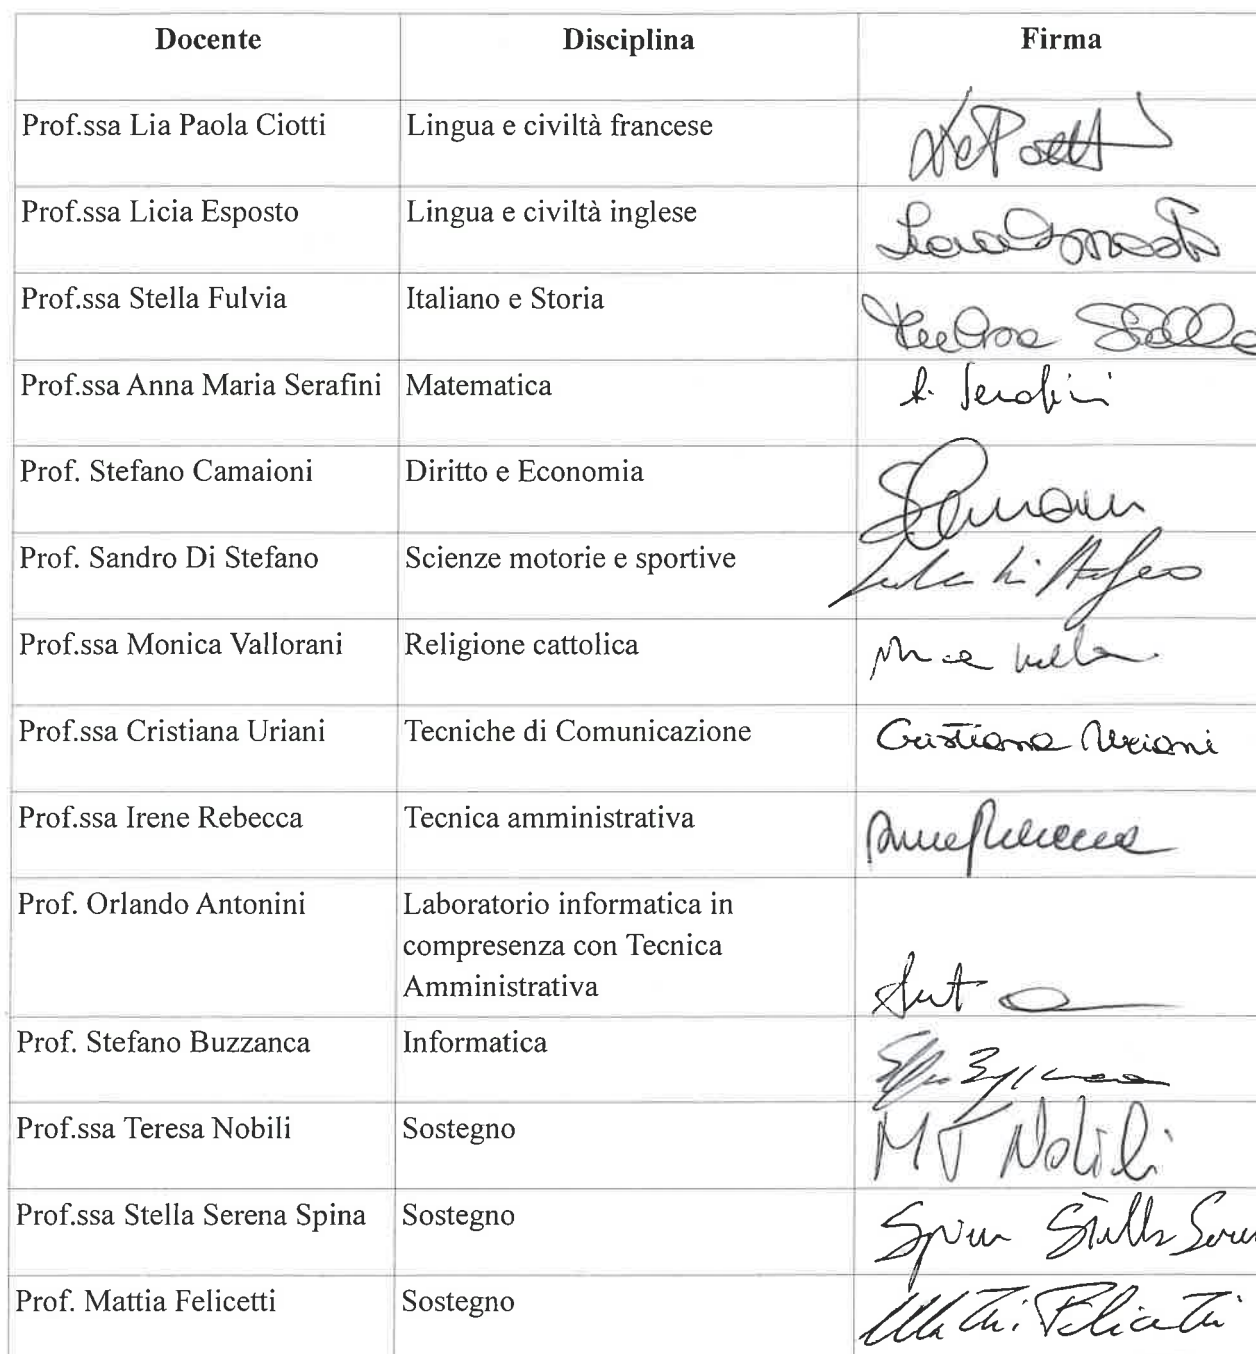 Docente Disciplina Firma
Prof.ssa Lia Paola Ciotti Lingua e civiltà francese
Prof.ssa Licia Esposto Lingua e civiltà inglese
Prof.ssa Stella Fulvia Italiano e Storia
Stella
Prof.ssa Anna Maria Serafini Matematica
A. Serafini
Prof. Stefano Camaioni Diritto e Economia
Prof. Sandro Di Stefano Scienze motorie e sportive
Prof.ssa Monica Vallorani Religione cattolica
Prof.ssa Cristiana Uriani Tecniche di Comunicazione
Cristiana Uriani
Prof.ssa Irene Rebecca Tecnica amministrativa
Prof. Orlando Antonini Laboratorio informatica in
compresenza con Tecnica
Amministrativa
Prof. Stefano Buzzanca Informatica
Prof.ssa Teresa Nobili Sostegno
MT Nobili
Prof.ssa Stella Serena Spina Sostegno
Prof. Mattia Felicetti Sostegno